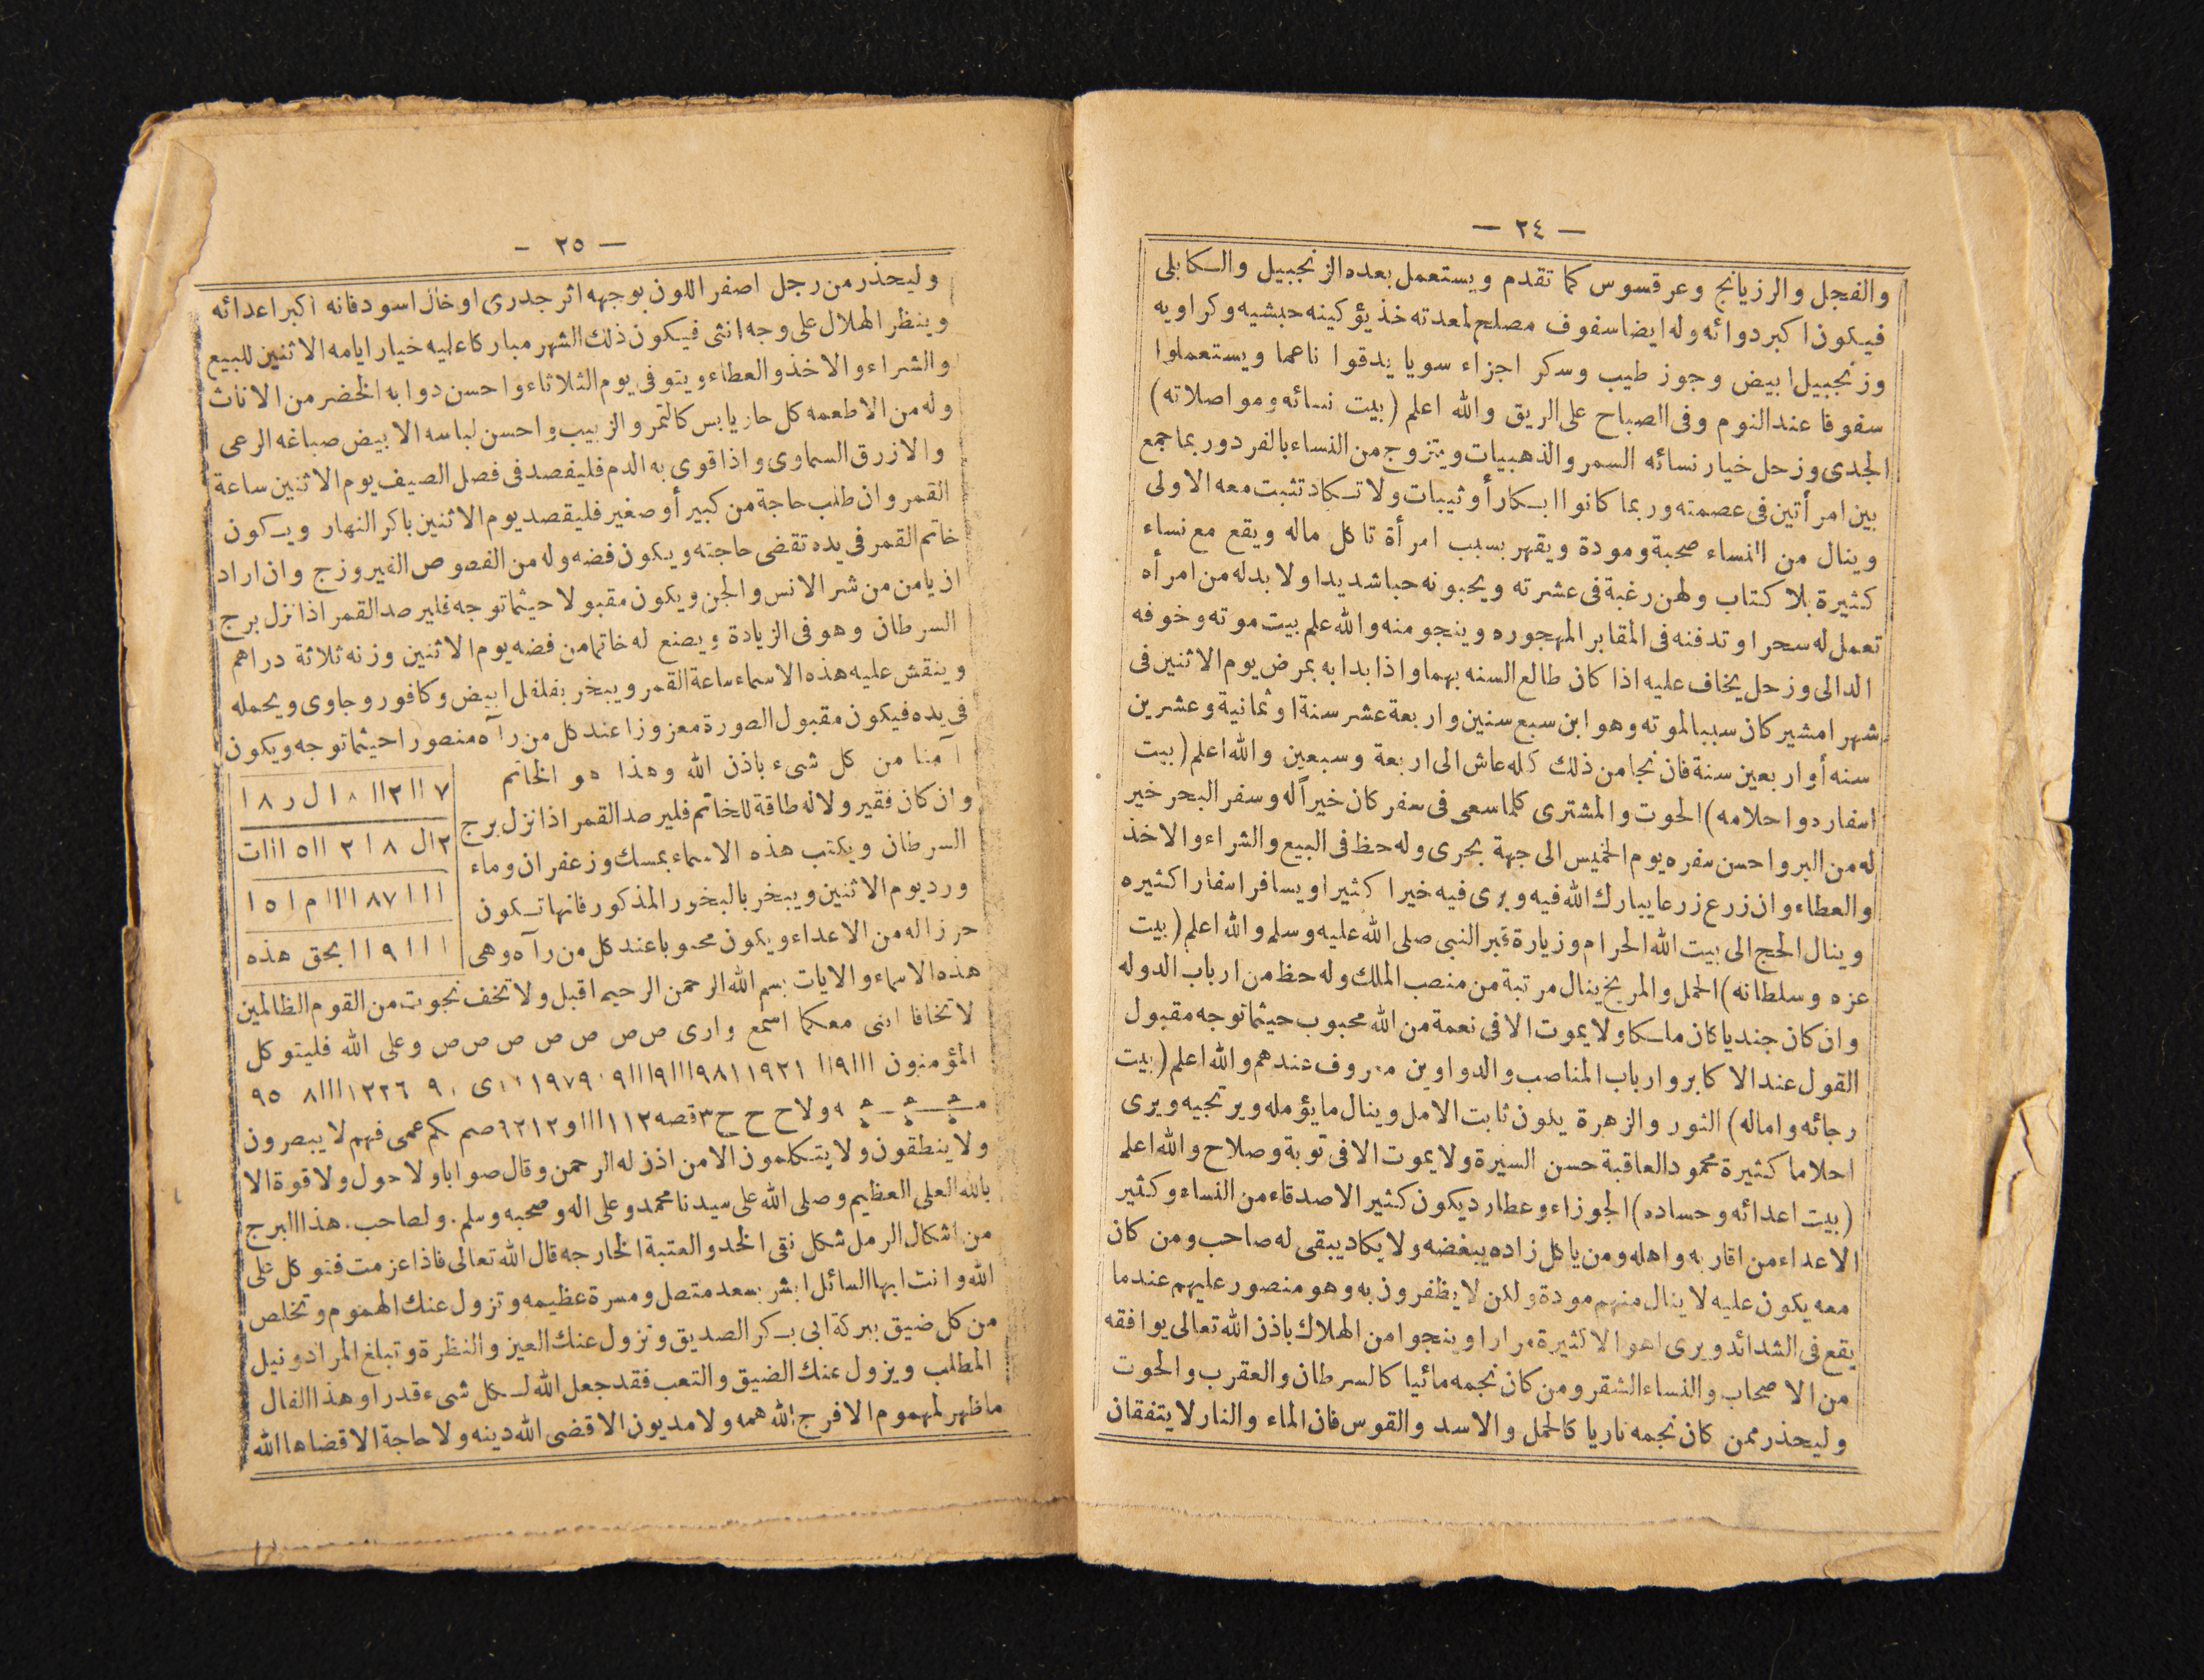 — ٢٤ —
والفجل والرزيانج وعرقسوس كما تقدم ويستعمل بعده الزنجبيل والكابلى
فيكون اكبر دوائه وله ايضا سفوف مصلح لمعدته خذ يؤ كينه حبشيه وكراويه
وزنجبيل ابيض وجوز طيب وسكر اجزاء سويا يدقوا ناعما ويستعملوا
سفوفا عند النوم وفى الصباح على الريق والله اعلم (بيت نسائه ومواصلاته)
الجدى وزحل خيار نسائه السمر والذهبيات ويتزوج من النساء بالفرد وربما جمع
بين امرأتين فى عصمته وربما كانوا ابكار أو ثيبات ولا تكاد تثبت معه الاولى
وينال من النساء صحبة ومودة ويقهر بسبب امرأة تاكل ماله ويقع مع نساء
كثيرة بلا كتاب ولهن رغبة فى عشرته ويحبونه حبا شديدا ولا بد له من امرأه
تعمل له سحر او تدفنه فى المقابر المهجوره وينجو منه والله علم بيت موته وخوفه
الدالى وزحل يخاف عليه اذا كان طالع السنه بهما واذا بدا به بمرض يوم الاثنين فى
شهر امشير كان سببا لموته وهو ابن سبع سنين واربعة عشر سنة او ثمانية وعشرين
سنه أو اربعين سنة فان نجا من ذلك كله عاش الى اربعة وسبعين والله اعلم (بيت
اسفارد واحلامه) الحوت والمشترى كلما سعى فى سفر كان خيراً له وسفر البحر خير
له من البر واحسن سفره يوم الخميس الى جهة بحرى وله حظ فى البيع والشراء والاخذ
والعطاء وان زرع زرعا يبارك الله فيه ويرى فيه خيرا كثيرا ويسافر اسفارا كثيره
وينال الحج الى بيت الله الحرام وزيارة قبر النبى صلى الله عليه وسلم والله اعلم (بيت
عزه وسلطانه) الحمل والمريخ ينال مرتبة من منصب الملك وله حظ من ارباب الدوله
وان كان جنديا كان ماسكا ولا يموت الا فى نعمة من الله محبوب حيثما توجه مقبول
القول عند الاكابر وارباب المناصب والدواوين معروف عندهم والله اعلم (بيت
رجائه واماله) الثور والزهرة يكون ثابت الامل وينال ما يؤمله ويرتجيه ويرى
احلاما كثيرة محمود العاقبة حسن السيرة ولا يموت الا فى توبة وصلاح والله اعلم
(بيت اعدائه وحساده) الجوزاء وعطارد يكون كثير الاصدقاء من النساء وكثير
الاعداء من اقاربه واهله ومن ياكل زاده يبغضه ولا يكاد يبقى له صاحب ومن كان
معه يكون عليه لا ينال منهم مودة ولكن لا يظفرون به وهو منصور عليهم عندما
يقع فى الشدائد ويرى اهوالا كثيرة مرارا وينجوا من الهلاك باذن الله تعالى يوافقه
من الاصحاب والنساء الشقر ومن كان نجمه مائيا كالسرطان والعقرب والحوت
وليحذر ممن كان نجمه ناريا كالحمل والاسد والقوس فان الماء والنار لا يتفقان
— ٢٥ -
وليحذر من رجل اصفر اللون بوجهه اثر جدرى او خال اسود فانه اكبر اعدائه
وينظر الهلال على وجه انثى فيكون ذلك الشهر مباركا عليه خيار ايامه الاثنين للبيع
والشراء والاخذ والعطاء ويتوفى يوم الثلاثاء واحسن دوابه الخضر من الاناث
وله من الاطعمه كل حار يابس كالتمر والزبيب واحسن لباسه الابيض صباغه الرعى
والازرق السماوى واذا قوى به الدم فليفصد فى فصل الصيف يوم الاثنين ساعة
القمر وان طلب حاجة من كبير أو صغير فليقصد يوم الاثنين باكر النهار ويكون
خاتم القمر فى يده تقضى حاجته ويكون فضه وله من الفصوص الفيروزج وان اراد
ان يامن من شر الانس والجن ويكون مقبولا حيثما توجه فليرصد القمر اذا نزل برج
السرطان وهو فى الزيادة ويصنع له خاتما من فضه يوم الاثنين وزنه ثلاثة دراهم
وينقش عليه هذه الاسماء ساعة القمر ويبخر بفلفل ابيض وكافور وجاوى ويحمله
فى يده فيكون مقبول الصورة معزوزا عند كل من رآه منصورا حيثما توجه ويكون
آمنا من كل شىء باذن الله وهذا هو الخاتم
وان كان فقير ولا له طاقة للخاتم فليرصد القمر اذا نزل برج
السرطان ويكتب هذه الاسماء بمسك وزعفران وماء
ورد يوم الاثنين ويبخر بالبخور المذكور فانها تكون
حرزا له من الاعداء ويكون محبوبا عند كل من رآه وهى
٧ اا ٢ اا ١٨ ل ر ٨ ا
٢ ال ٨ ا ٢ اا ٥ ااات
ا ا ا ٨٧ اااا م ا ٥ ا
ا ا ا ٩ ا ا بحق هذه
هذه الاسماء والايات بسم الله الرحمن الرحيم اقبل ولا تخف نجوت من القوم الظالمين
لا تخافا اننى معكما اسمع وارى صص ص ص ص صص وعلى الله فليتوكل
المؤمنون
ولاح ح ح ٣ قصه صم بكم عمى فهم لا يبصرون
ولا ينطقون ولا يتكلمون الا من اذن له الرحمن وقال صوابا ولا حول ولا قوة الا
بالله العلى العظيم وصلى الله على سيدنا محمد وعلى اله وصحبه وسلم. ولصاحب. هذا البرج
من اشكال الرمل شكل نقى الخد والعتبة الخارجه قال الله تعالى فاذا عزمت فتوكل على
الله وانت ايها السائل ابشر بسعد متصل ومسرة عظيمه وتزول عنك الهموم وتخلص
من كل ضيق ببركة ابى بكر الصديق وتزول عنك العيز والنظرة وتبلغ المراد ونيل
المطلب ويزول عنك الضيق والتعب فقد جعل الله لكل شىء قدرا وهذا الفال
ما ظهر لمهموم الا فرج الله همه ولا مديون الا قضى الله دينه ولا حاجة الا قضاها الله